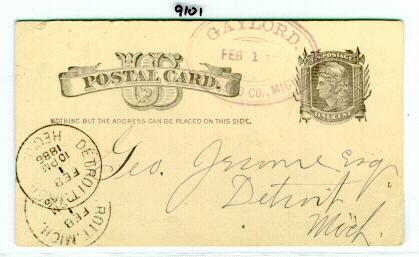 9101
GAYLORD
FEB 1
CO., MICH.
U.S. POSTAGE
ONE CENT
US
POSTAL CARD.
NOTHING BUT THE ADDRESS CAN BE PLACED ON THIS SIDE.
DETROIT, MICH.
FEB
1
10 PM
1886
REC'D.
ROIT, MICH.
FEB
Geo. Jerome Esq
Detroit
Mich.